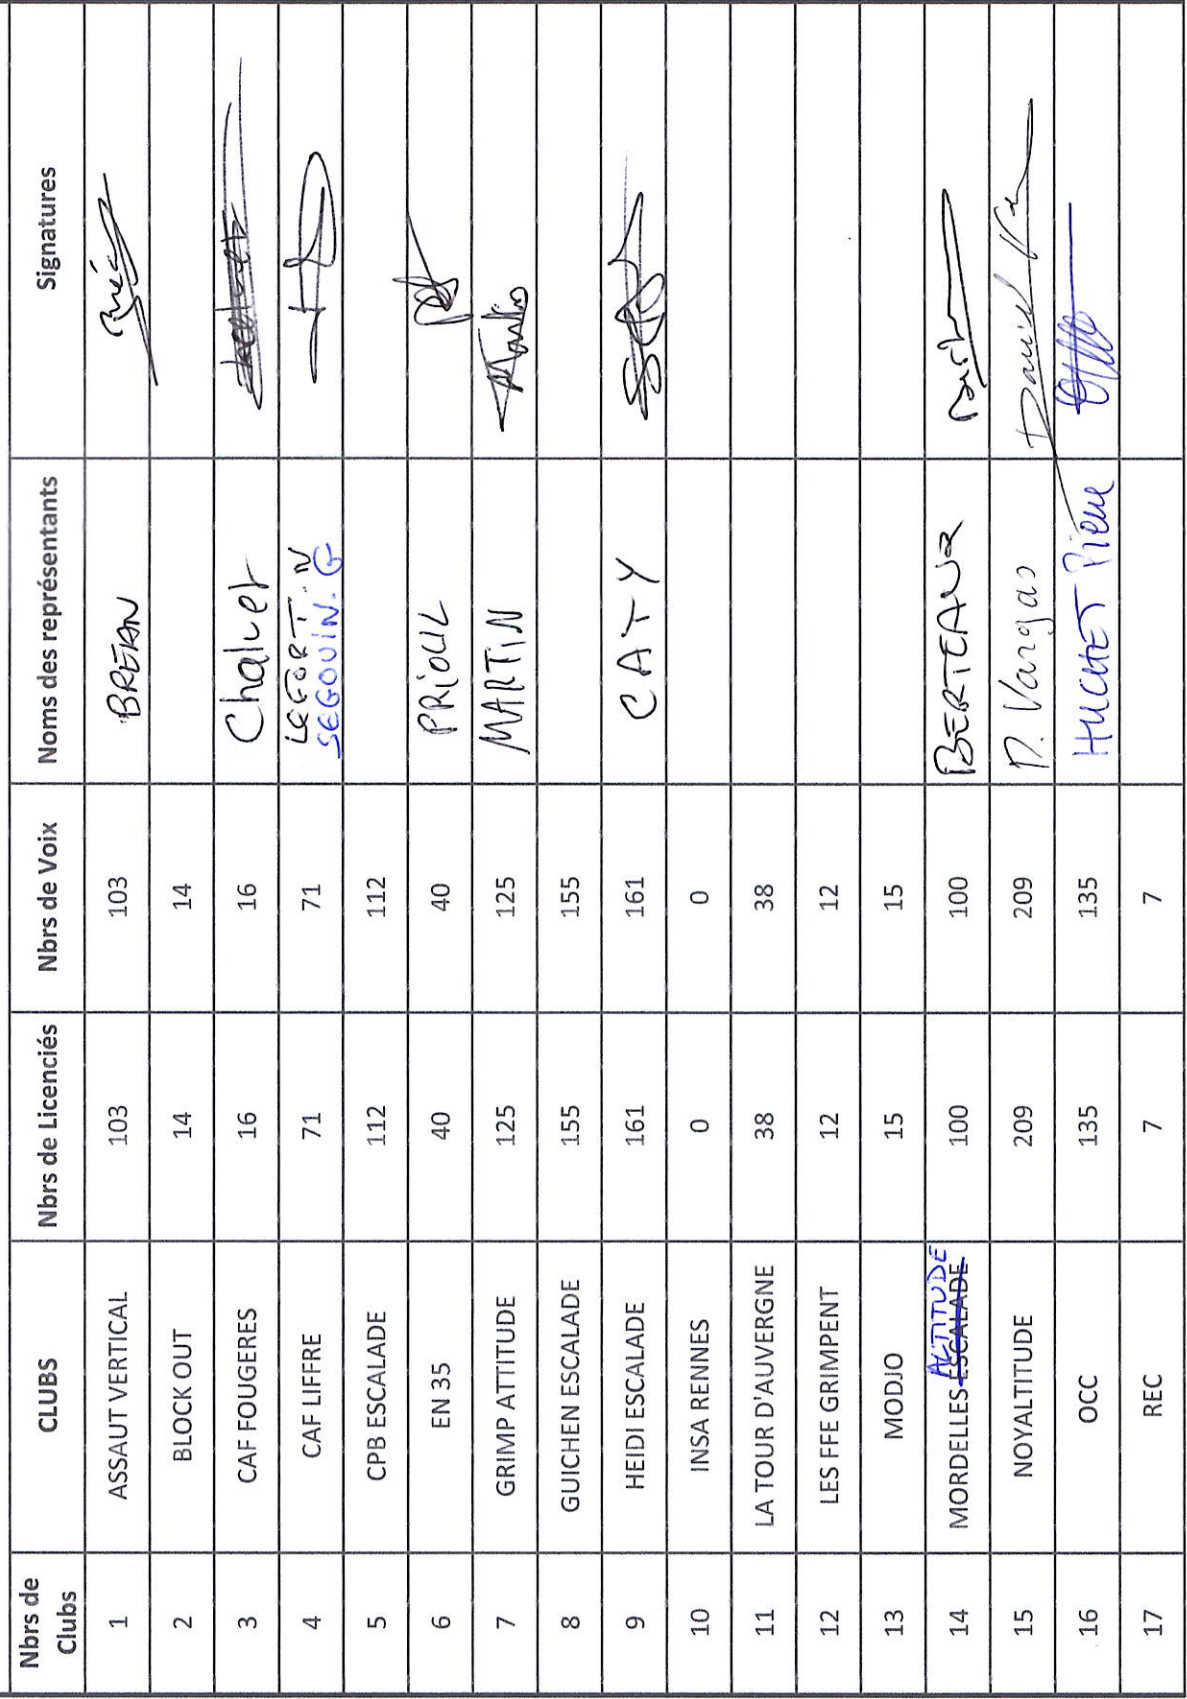 Nbrs de Clubs CLUBS Nbrs de Licenciés Nbrs de Voix Noms des représentants Signatures
1 ASSAUT VERTICAL 103 103 BREHAN
2 BLOCK OUT 14 14
3 CAF FOUGERES 16 16 Chaluet
4 CAF LIFFRE 71 71 LEGORTIN
SEGOUIN.G
5 CPB ESCALADE 112 112
6 EN 35 40 40 PRIOUL
7 GRIMP ATTITUDE 125 125 MARTIN
8 GUICHEN ESCALADE 155 155
9 HEIDI ESCALADE 161 161 CATY
10 INSA RENNES 0 0
11 LA TOUR D'AUVERGNE 38 38
12 LES FFE GRIMPENT 12 12
13 MODJO 15 15
ALTITUDE
14 MORDELLES ESCALADE 100 100 BERTEAUX
15 NOYALTITUDE 209 209 D. Vargas
16 OCC 135 135 HUCHET Pierre
17 REC 7 7